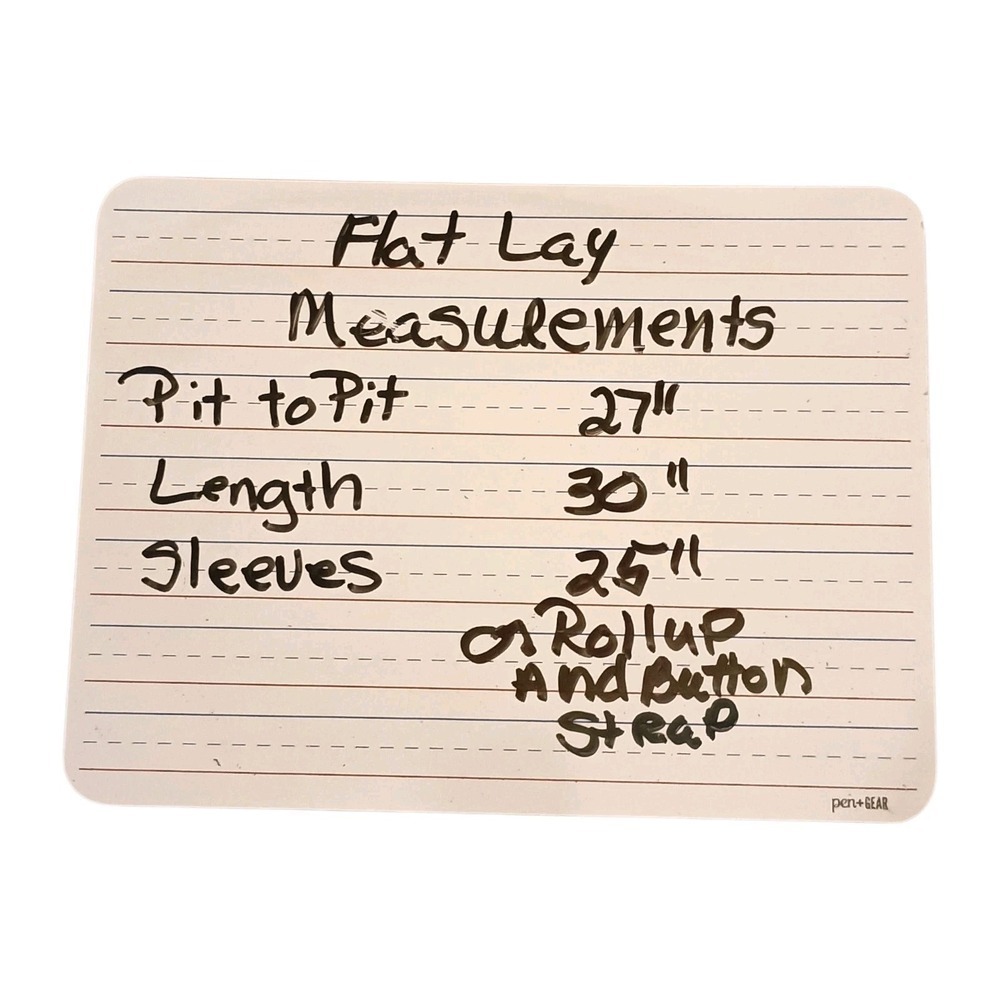 Flat Lay
Measurements
Pit to Pit 27"
Length 30"
Sleeves 25"
or Rollup
And Button
Strap
pen+GEAR